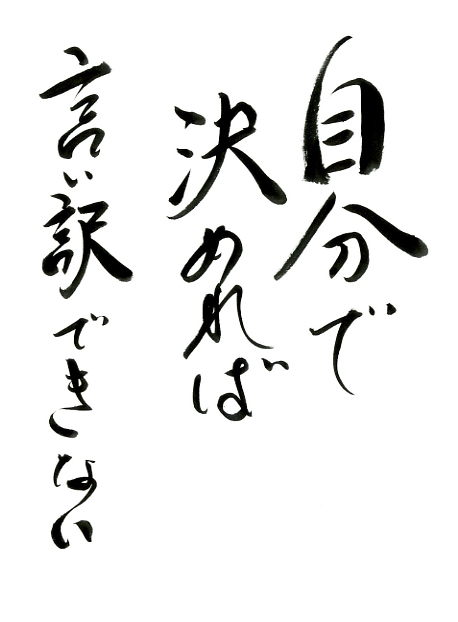 自分で
決めれば
言い訳できない